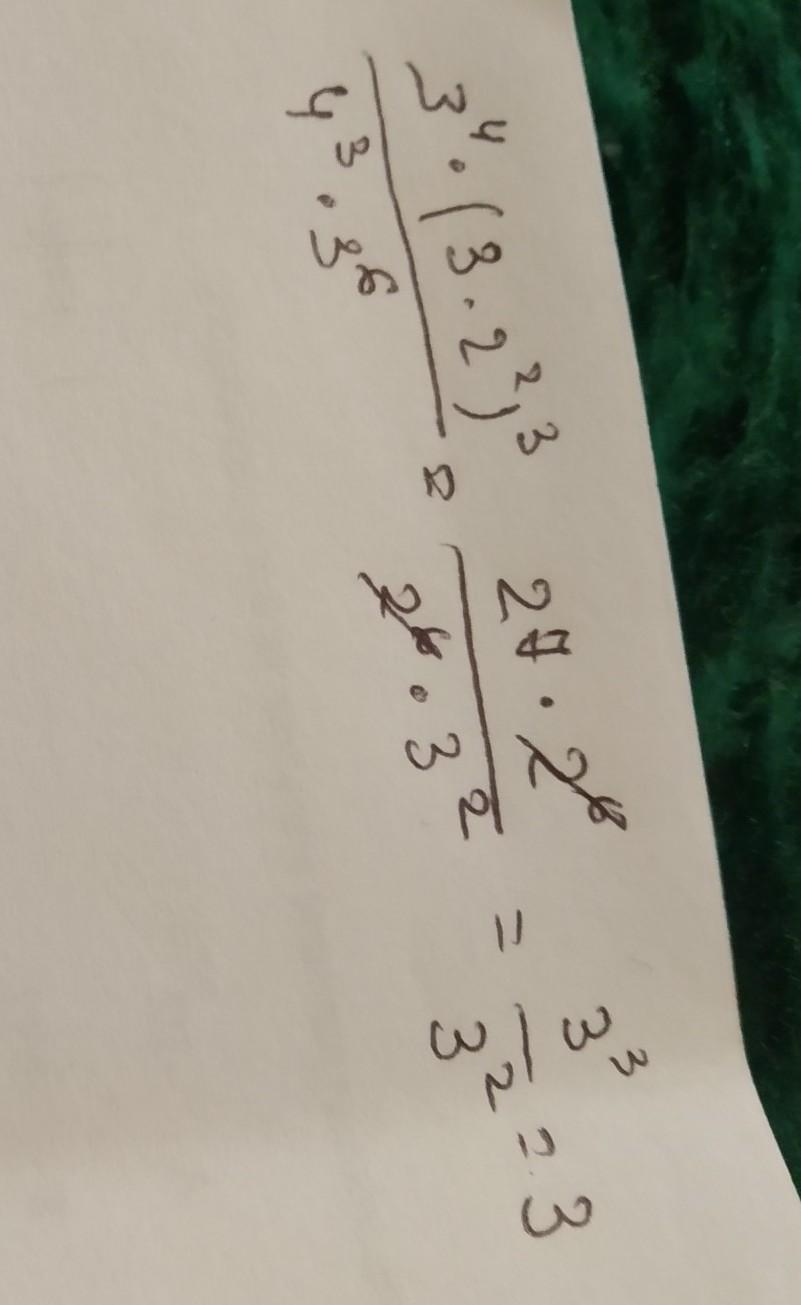 3⁴ · (3 · 2²)³ / 4³ · 3⁶ = 27 · 2⁶ / 2⁶ · 3² = 3³ / 3² = 3